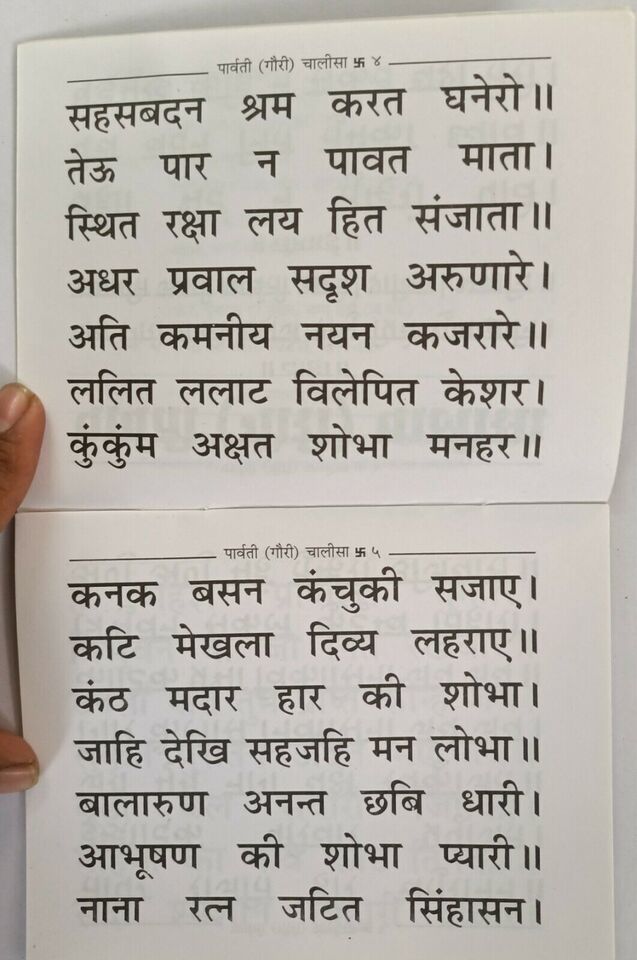 पार्वती (गौरी) चालीसा 卐 ४
सहसबदन श्रम करत घनेरो॥
तेऊ पार न पावत माता।
स्थित रक्षा लय हित संजाता॥
अधर प्रवाल सदृश अरुणारे।
अति कमनीय नयन कजरारे॥
ललित ललाट विलेपित केशर।
कुंकुंम अक्षत शोभा मनहर॥
पार्वती (गौरी) चालीसा 卐 ५
कनक बसन कंचुकी सजाए।
कटि मेखला दिव्य लहराए॥
कंठ मदार हार की शोभा।
जाहि देखि सहजहि मन लोभा॥
बालारुण अनन्त छबि धारी।
आभूषण की शोभा प्यारी॥
नाना रत्न जटित सिंहासन।